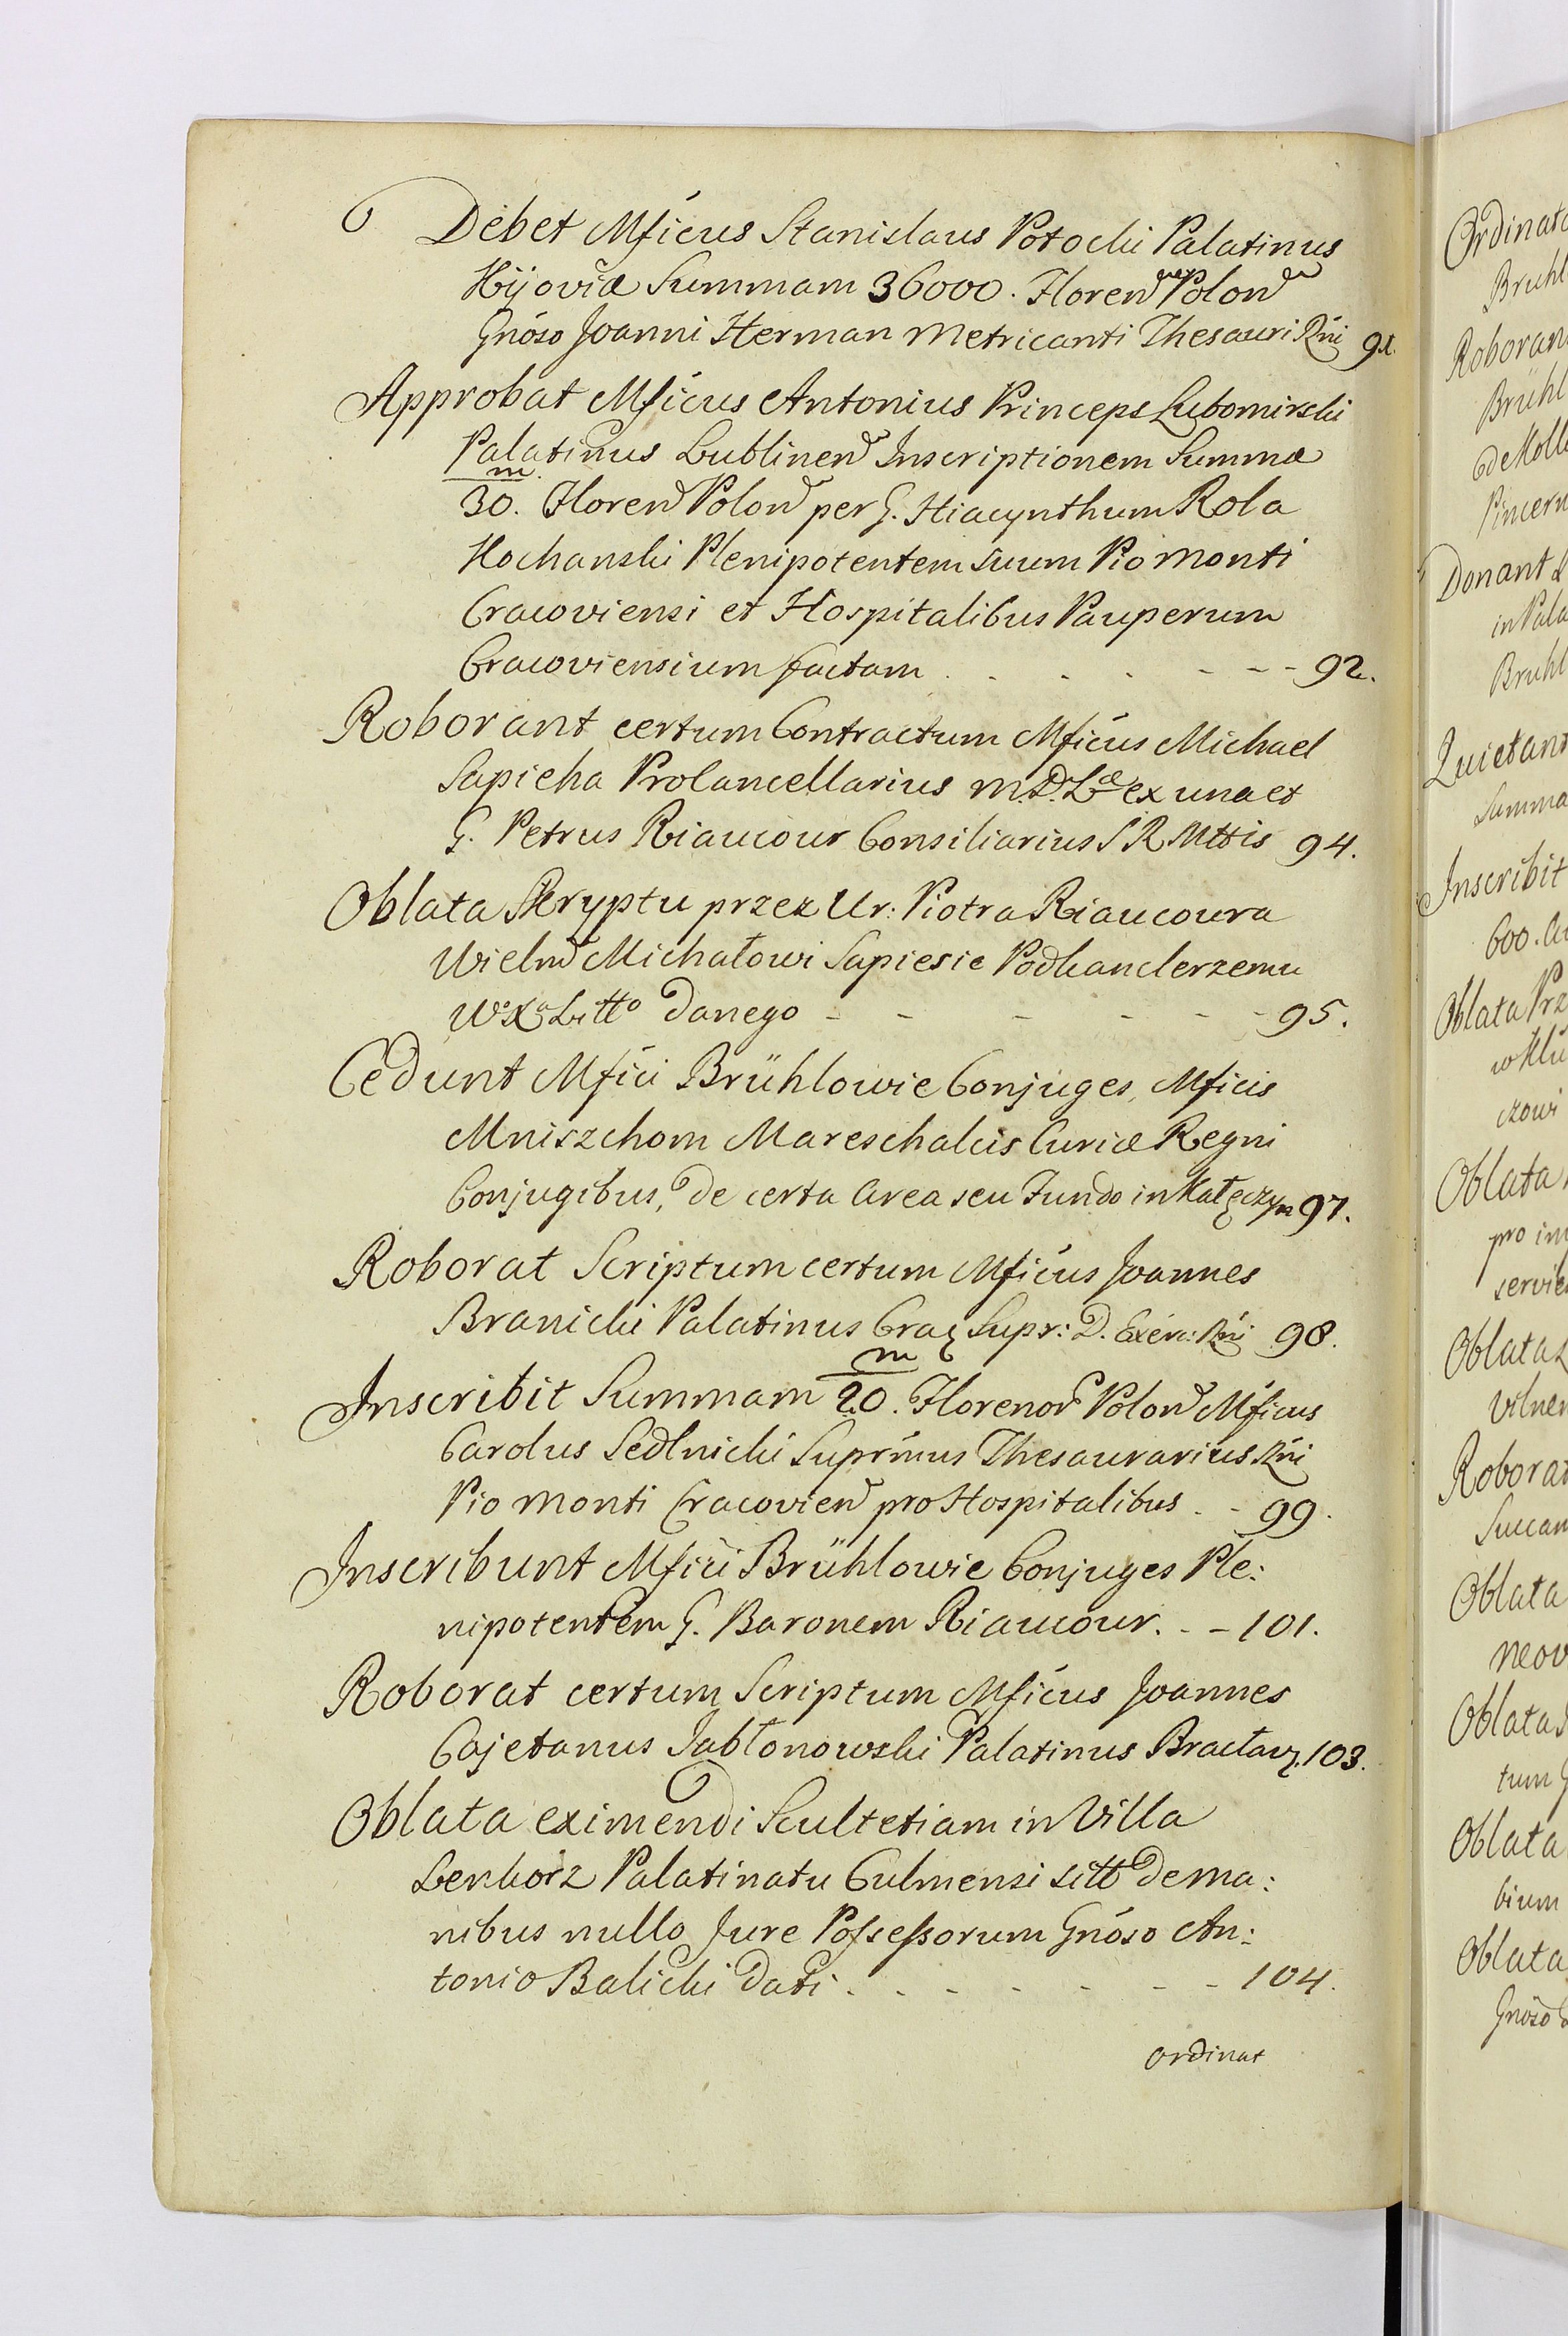 Debet Mficus Stanislaus Potocki Palatinus
Kijoviæ Summam 36000. Floren Polon
Gnoso Joanni Herman Metricanti Thesauri Rni 91.
Approbat Mficus Antonius Princeps Lubomirski
Palatinus Lublinen Inscriptionem Summæ
30.m Floren Polon per G. Hiacynthum Rola
Kochanski Plenipotentem suum Pio Monti
Cracoviensi et Hospitalibus Pauperum
Cracoviensium factam . . . . - - - 92.
Roborant certum Contractum Mficus Michael
Sapieha Procancellarius M.D.Læ ex una et
G. Petrus Riaucour Consiliarius S R Mttis 94.
Oblata Skryptu przez Ur: Piotra Riaucoura
Wieln Michałowi Sapiesie Podkanclerzemu
Wo Xa Litto danego - - - - - - 95.
Cedunt Mfici Brühlowie Conjuges, Mficis
Mniszchom Mareschalcis Curiæ Regni
Conjugibus, de certa Area seu Fundo in Kałęczyn 97.
Roborat Scriptum certum Mficus Joannes
Branicki Palatinus Crac Supr: D. Exerc: Rni 98.
Inscribit Summam 20.m Florenor Polon Mficus
Carolus Sedlnicki Suprimus Thesaurarius Rni
Pio Monti Cracovien pro Hospitalibus . - 99.
Inscribunt Mfici Brühlowie Conjuges Ple:
nipotentem G. Baronem Riaucour. - - 101.
Roborat certum Scriptum Mficus Joannes
Cajetanus Jabłonowski Palatinus Bracław. 103.
Oblata eximendi Scultetiam in Villa
Lenkorz Palatinatu Culmensi sitt de ma:
nibus nullo Jure Possessorum Gnoso An:
tonio Balicki dati . . - - - - - 104.
ordinat
Ordinat
Bruhl
Roboran
Brühl
de Moll
Pincern
Donant
in Pala
Bruhl
Quietant
Summa
Inscribit
600.
Oblata Prz
w Klu
czowi
Oblata
pro im
servie
Oblata
Vilnen
Roborat
Succam
Oblata
neov
Oblata
tum
Oblata
bium
Oblata
Gnoso